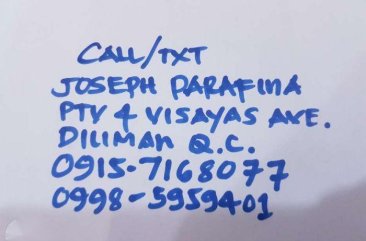 CALL/TXT
JOSEPH PARAFINA
PTV 4 VISAYAS AVE.
DILIMAN Q.C.
0915-7168077
0998-5959401